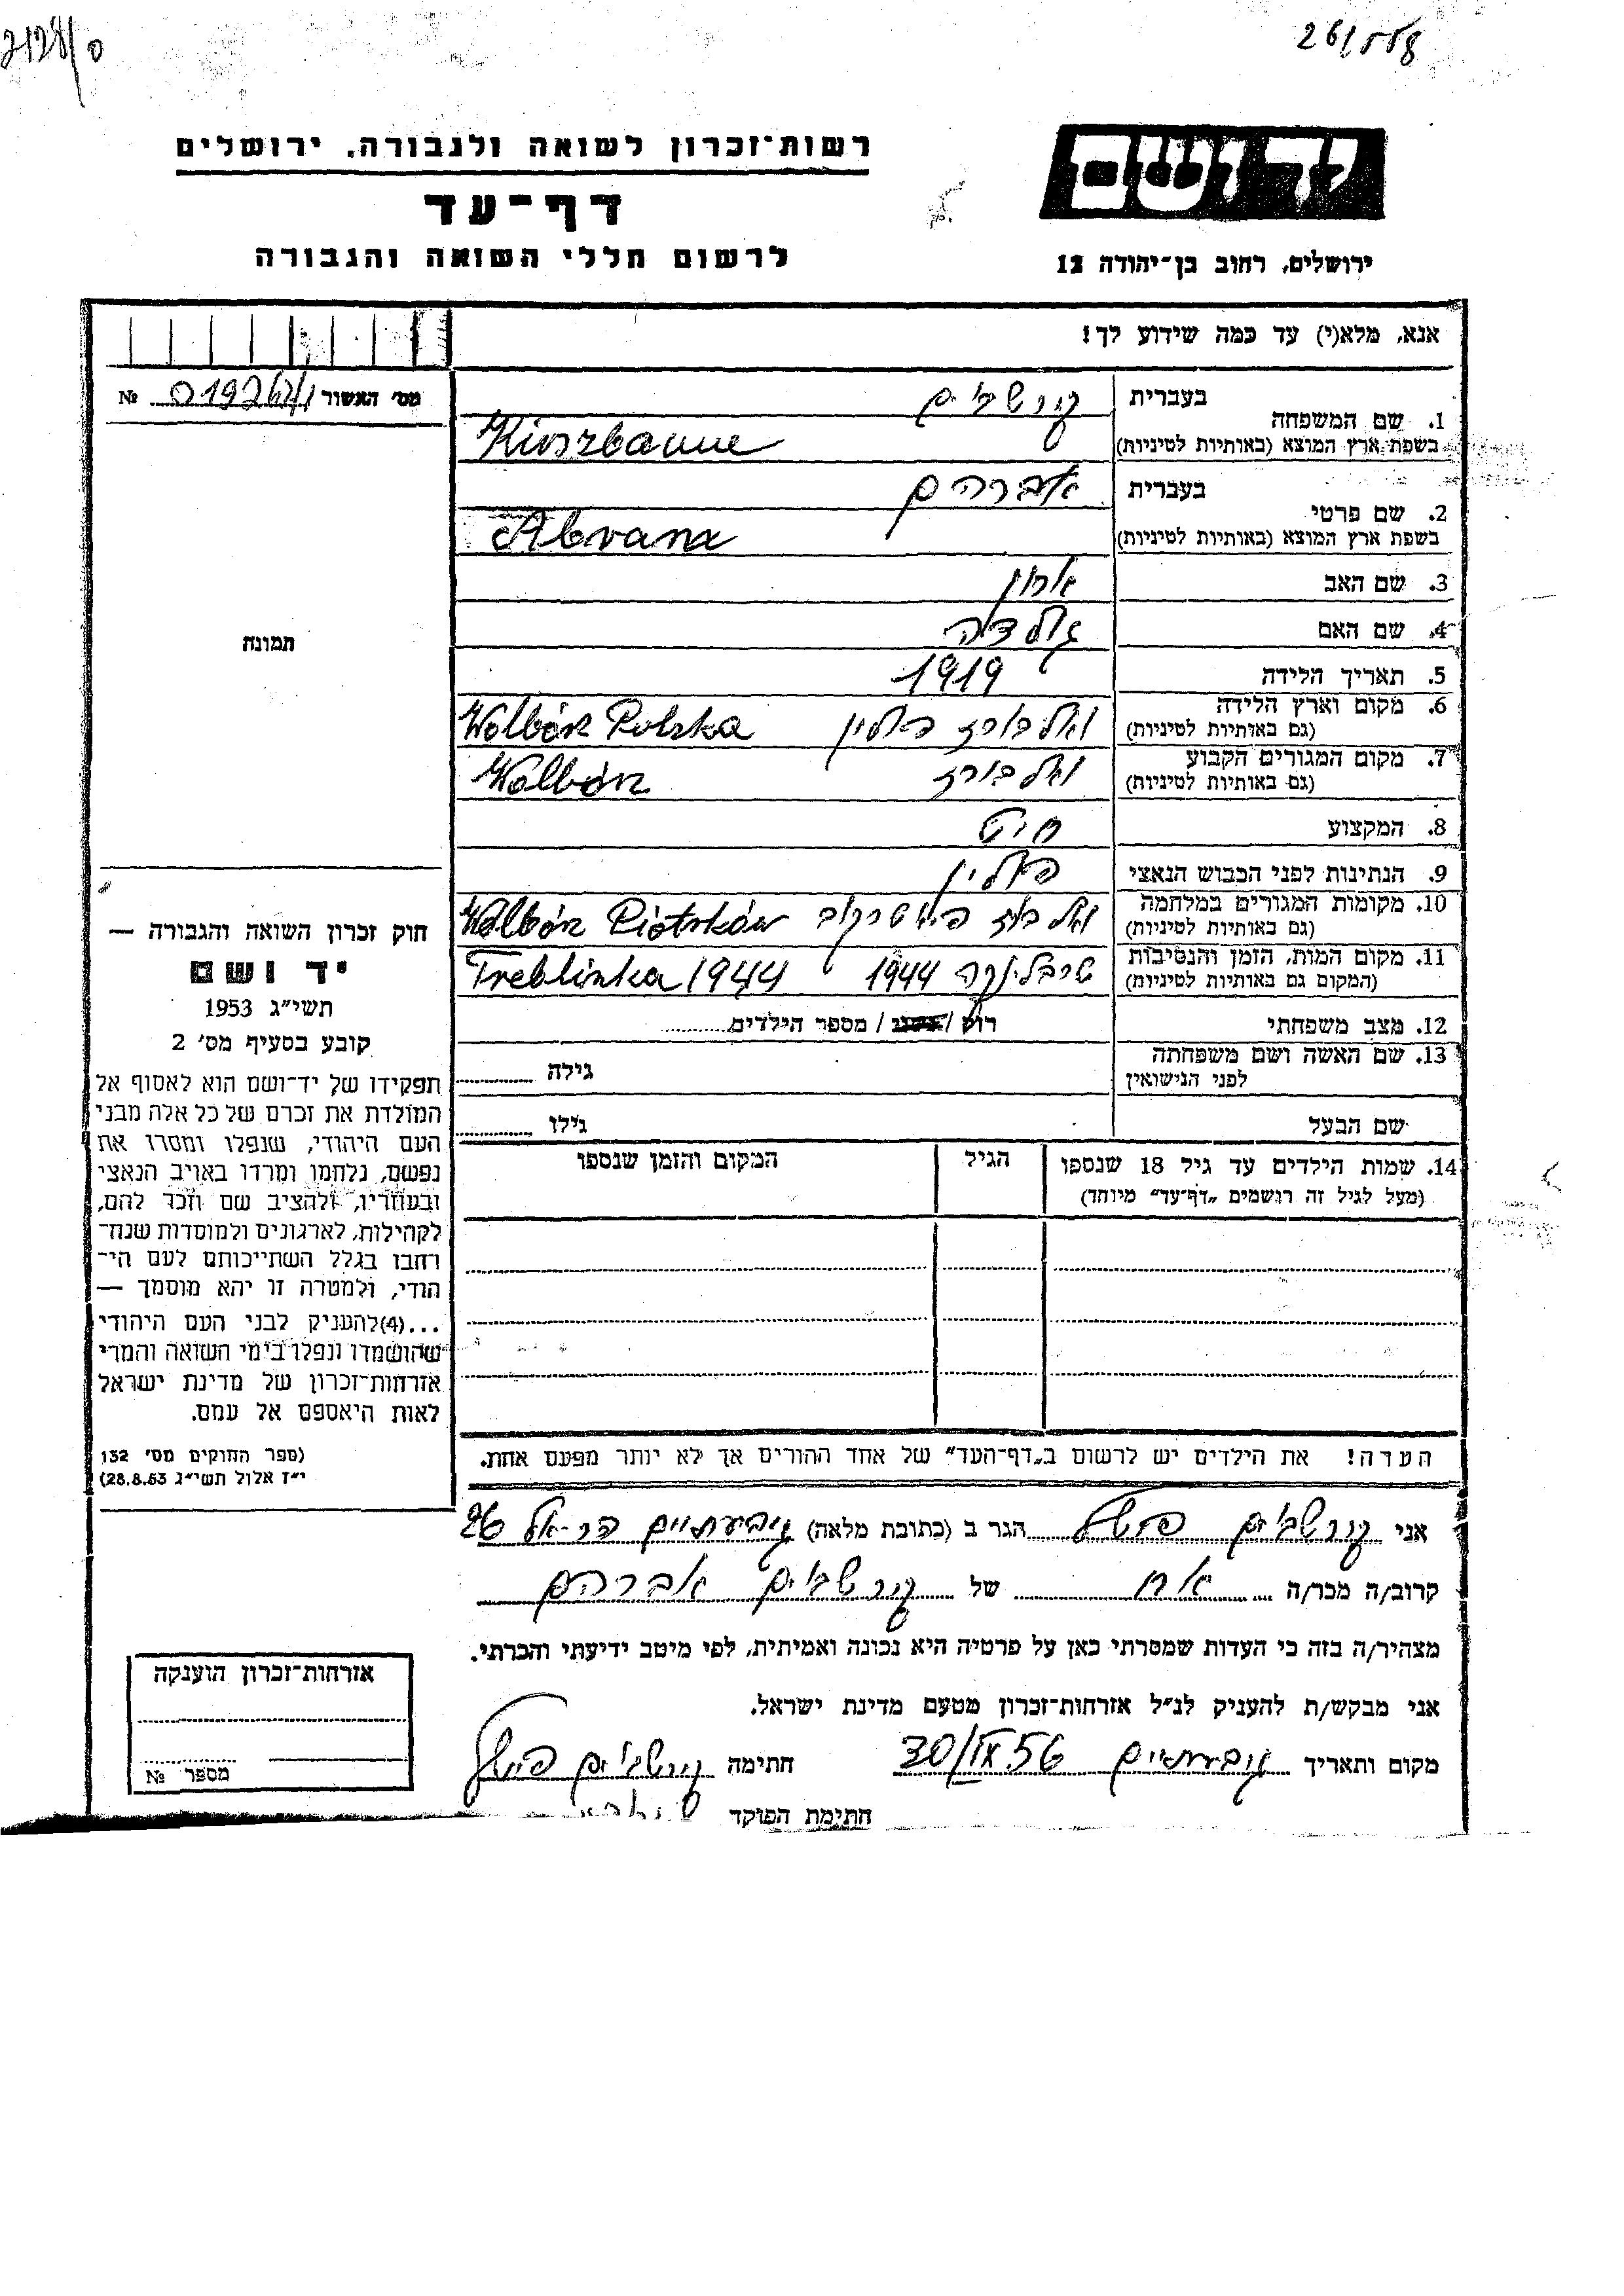 26/558
יד ושם
ירושלים, רחוב בן־יהודה 12
רשות־זכרון לשואה ולגבורה. ירושלים
דף־עד
לרשום חללי השואה והגבורה
אנא, מלא(י) עד כמה שידוע לך!
מס׳ האשור №
1. שם המשפחה בעברית קורשבוים
בשפת ארץ המוצא (באותיות לטיניות) Kirszbaum
2. שם פרטי בעברית אברהם
בשפת ארץ המוצא (באותיות לטיניות) Abram
3. שם האב אהרון
4. שם האם גולדה
5. תאריך הלידה 1919
6. מקום וארץ הלידה (גם באותיות לטיניות) ואלבורז פולין Wolbórz Polska
7. מקום המגורים הקבוע (גם באותיות לטיניות) ואלבורז Wolbórz
8. המקצוע חיט
9. הנתינות לפני הכבוש הנאצי פולין
10. מקומות המגורים במלחמה (גם באותיות לטיניות) ואלבוז פיוטרקוב Wolbórz Piotrków
11. מקום המות, הזמן והנסיבות (המקום גם באותיות לטיניות) טרבלינקה 1944 Treblinka 1944
12. מצב משפחתי רוק / נשוי / מספר הילדים
13. שם האשה ושם משפחתה לפני הנישואין גילה
שם הבעל גילו
14. שמות הילדים עד גיל 18 שנספו הגיל המקום והזמן שנספו
(מעל לגיל זה רושמים „דף־עד״ מיוחד)
תמונה
חוק זכרון השואה והגבורה —
יד ושם
תשי״ג 1953
קובע בסעיף מס׳ 2
תפקידו של יד־ושם הוא לאסוף אל
המולדת את זכרם של כל אלה מבני
העם היהודי, שנפלו ומסרו את
נפשם, נלחמו ומרדו באויב הנאצי
ובעוזריו, ולהציב שם וזכר להם,
לקהילות, לארגונים ולמוסדות שנח־
רחבו בגלל השתייכותם לעם הי־
הודי, ולמטרה זו יהא מוסמך —
...(4)להעניק לבני העם היהודי
שהושמדו ונפלו בימי השואה והמרי
אזרחות־זכרון של מדינת ישראל
לאות היאספם אל עמם.
(ספר החוקים מס׳ 132
י״ז אלול תשי״ג 28.8.53)
הערה! את הילדים יש לרשום ב„דף־העד״ של אחד ההורים אך לא יותר מפעם אחת.
אני קורשבוים הגר ב (כתובת מלאה) גיבעתיים הראל 26
קרוב/ה מכר/ה אח של קורשבוים אברהם
מצהיר/ה בזה כי העדות שמסרתי כאן על פרטיה היא נכונה ואמיתית, לפי מיטב ידיעתי והכרתי.
אני מבקש/ת להעניק לנ״ל אזרחות־זכרון מטעם מדינת ישראל.
מקום ותאריך גבעתיים 30/IX 56 חתימה קורשבוים
חתימת הפוקד
אזרחות־זכרון הוענקה
מספר №